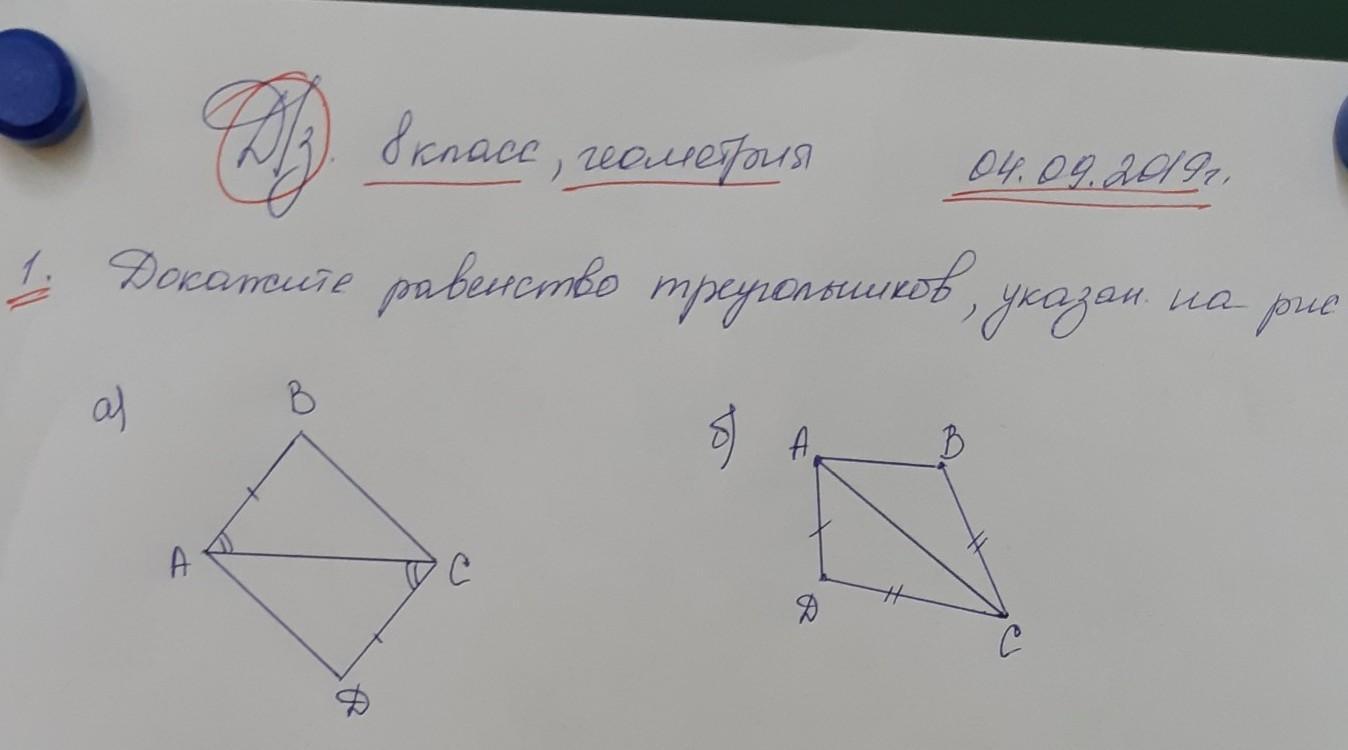 Д/з. 8 класс, геометрия 04.09.2019г.
1. Докажите равенство треугольников, указан. на рис
а) B
A C
D
б) A B
D
C